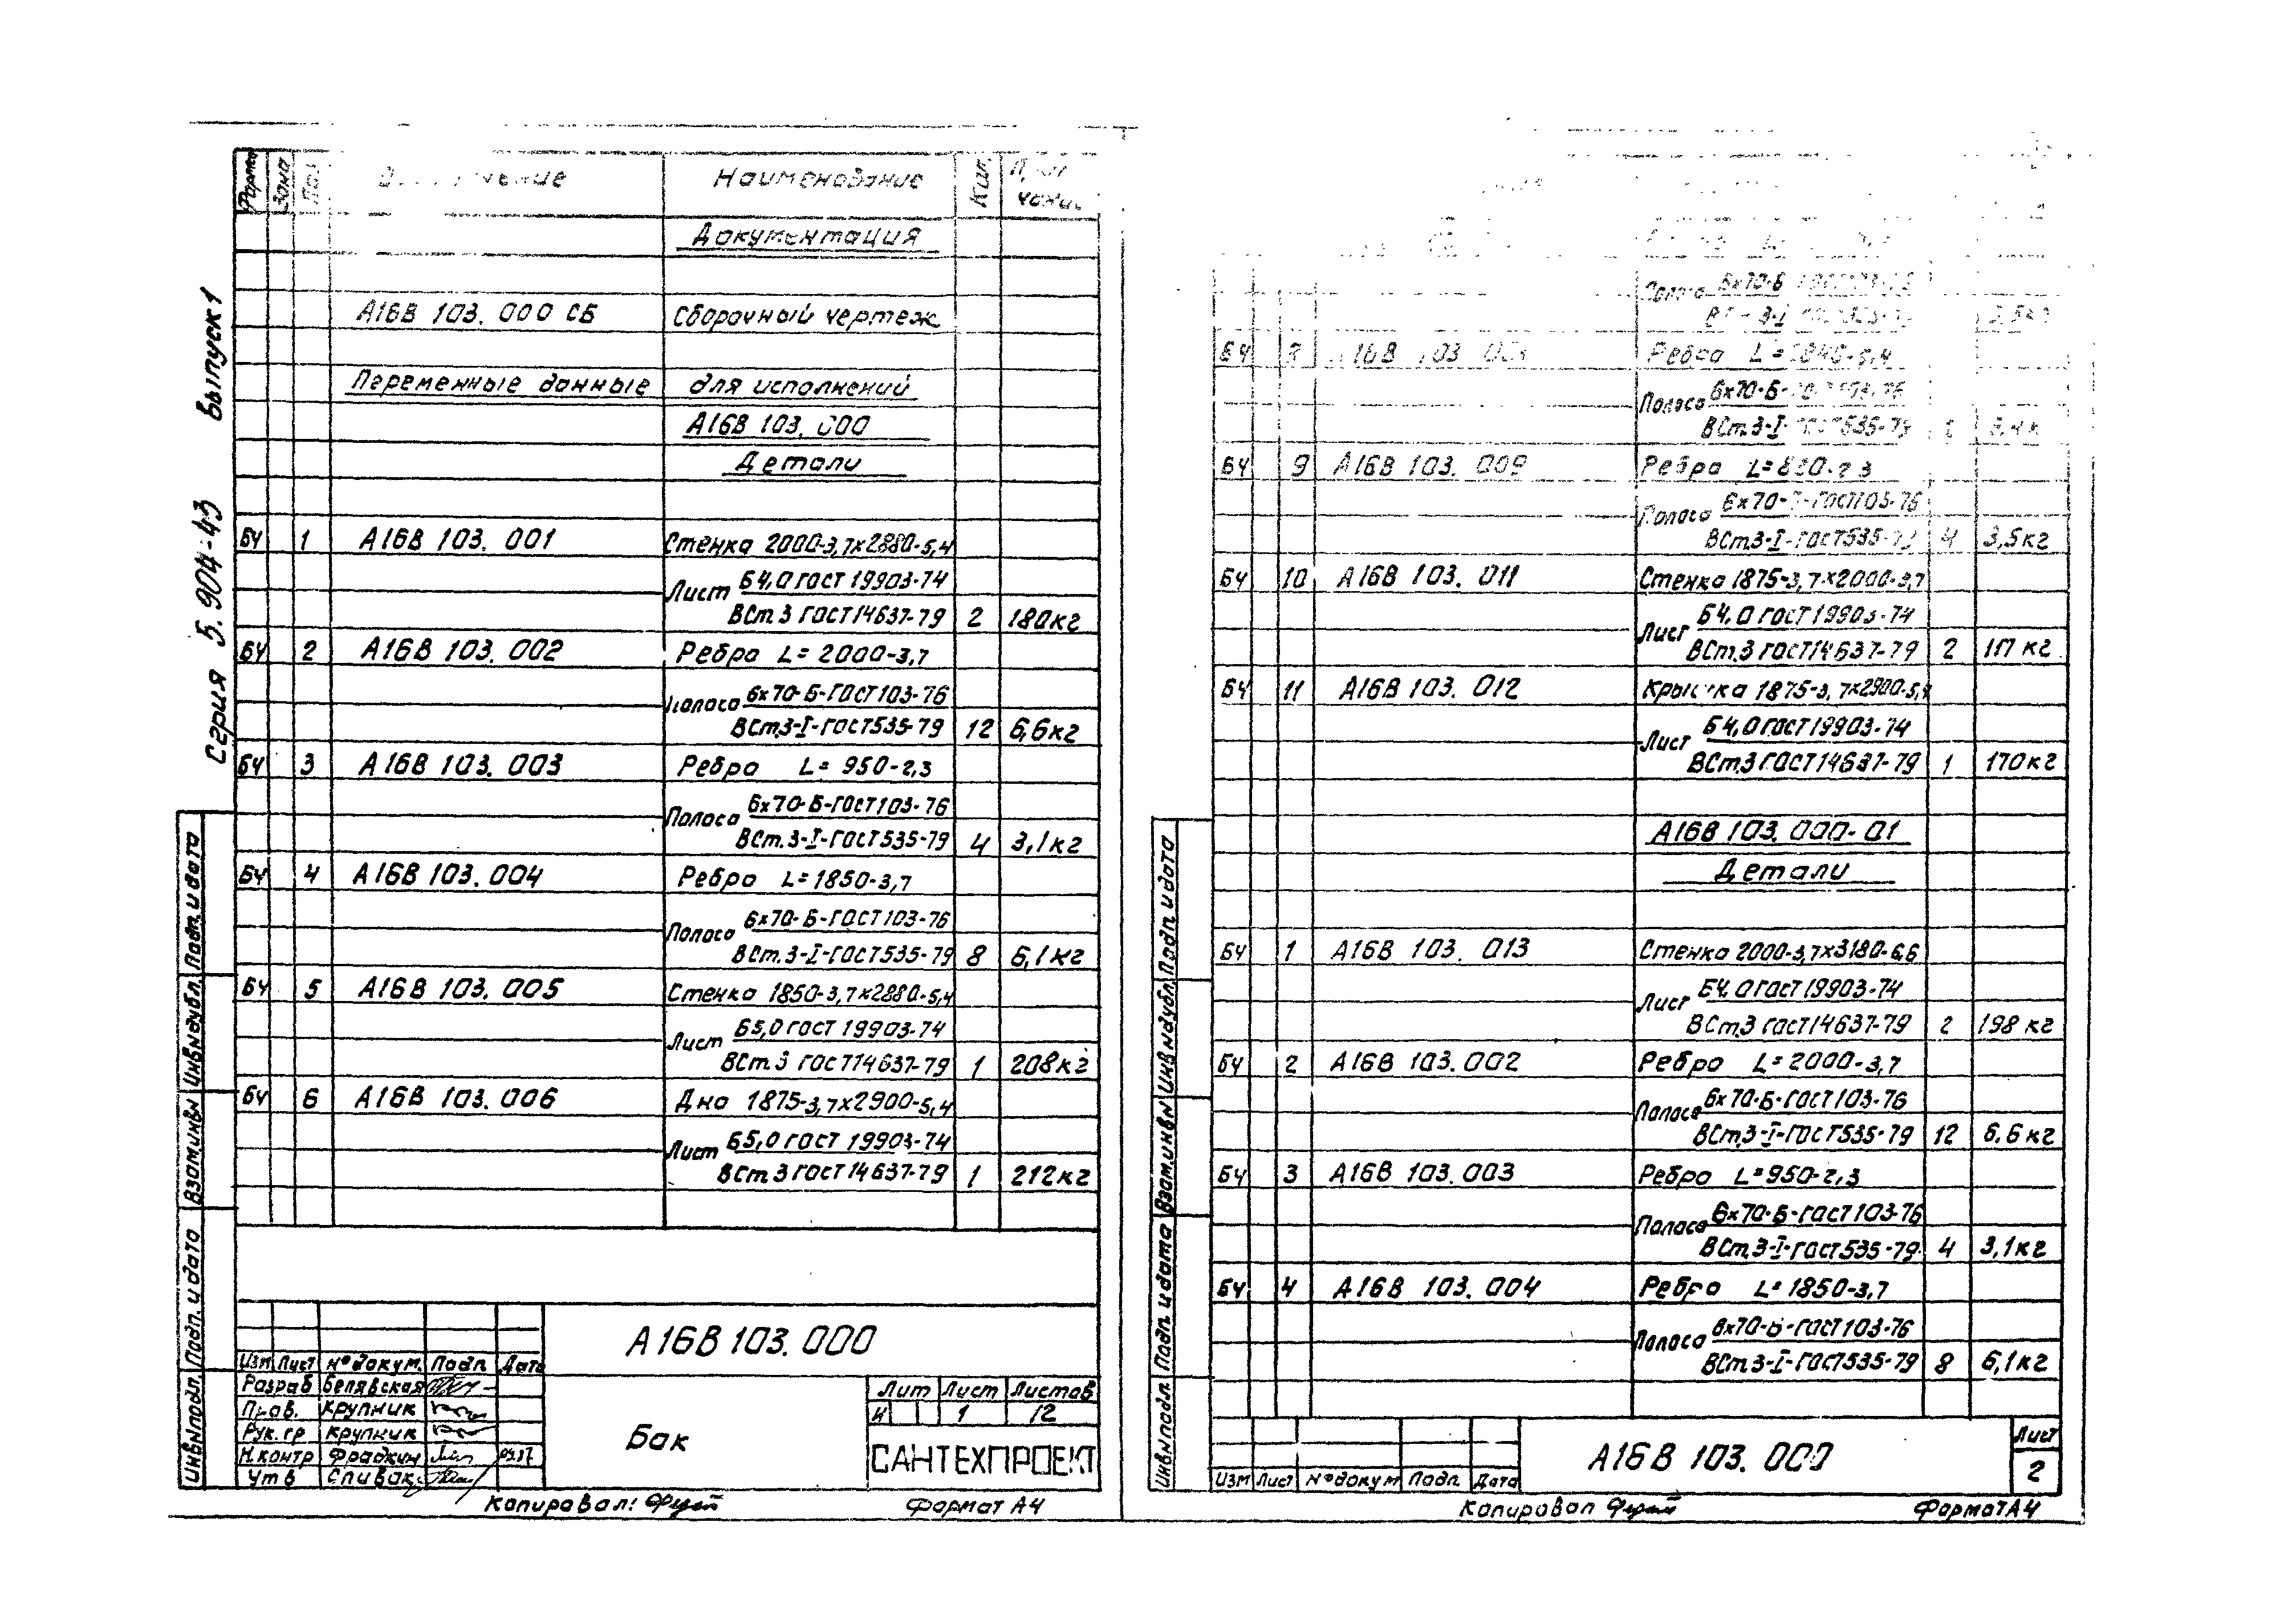 Серия 5.904-43 выпуск 1
Зона Наименование Кол.
Документация
А16В 103.000 СБ Сборочный чертеж
Переменные данные для исполнений
А16В 103.000
Детали
БЧ 1 А16В 103.001 Стенка 2000-3,7х2880-5,4
Лист Б4,0 ГОСТ 19903-74
ВСт.3 ГОСТ 14637-79 2 180кг
БЧ 2 А16В 103.002 Ребро L=2000-3,7
Полоса 6х70-Б-ГОСТ103-76
ВСт.3-I-ГОСТ535-79 12 6,6кг
БЧ 3 А16В 103.003 Ребро L=950-2,3
Полоса 6х70-Б-ГОСТ103-76
ВСт.3-I-ГОСТ535-79 4 3,1кг
БЧ 4 А16В 103.004 Ребро L=1850-3,7
Полоса 6х70-Б-ГОСТ103-76
ВСт.3-I-ГОСТ535-79 8 6,1кг
БЧ 5 А16В 103.005 Стенка 1850-3,7х2880-5,4
Лист Б5,0 ГОСТ 19903-74
ВСт.3 ГОСТ14637-79 1 208кг
БЧ 6 А16В 103.006 Дно 1875-3,7х2900-5,4
Лист Б5,0 ГОСТ 19903-74
ВСт.3 ГОСТ14637-79 1 212кг
Инв№подл. Подп. и дата Взам.инв№ Инв№дубл. Подп. и дата
А16В 103.000
Изм Лист №докум. Подп Дата
Разраб Белявская
Пров. Крупник
Рук.гр Крупник
Н.контр Фрадкин
Утв Спивак
Бак
Лит Лист Листов
И 1 12
САНТЕХПРОЕКТ
Копировал: Формат А4
Полоса 6х70-Б
Ребро
Полоса 6х70-Б-
ВСт.3-I-
БЧ 9 А16В 103.009 Ребро
Полоса 6х70- -ГОСТ103-76
ВСт3-I-ГОСТ535-79 4 3,5кг
БЧ 10 А16В 103.011 Стенка 1875-3,7х2000-3,7
Лист Б4,0 ГОСТ19903-74
ВСт.3 ГОСТ14637-79 2 117 кг
БЧ 11 А16В 103.012 Крышка 1875-3,7х2900-5,4
Лист Б4,0 ГОСТ19903-74
ВСт.3 ГОСТ14637-79 1 170кг
А16В 103.000-01
Детали
БЧ 1 А16В 103.013 Стенка 2000-3,7х3180-6,6
Лист Б4,0 ГОСТ19903-74
ВСт.3 ГОСТ14637-79 2 198 кг
БЧ 2 А16В 103.002 Ребро L=2000-3,7
Полоса 6х70-Б-ГОСТ103-76
ВСт.3-I-ГОСТ535-79 12 6.6кг
БЧ 3 А16В 103.003 Ребро L=950-2,3
Полоса 6х70-Б-ГОСТ103-76
ВСт.3-I-ГОСТ535-79 4 3,1кг
БЧ 4 А16В 103.004 Ребро L=1850-3,7
Полоса 6х70-Б-ГОСТ103-76
ВСт.3-I-ГОСТ535-79 8 6,1кг
Инв№подл Подп. и дата Взам.инв№ Инв№дубл. Подп. и дата
Изм Лист №докум Подп. Дата
А16В 103.000
Лист
2
Копировал Формат А4